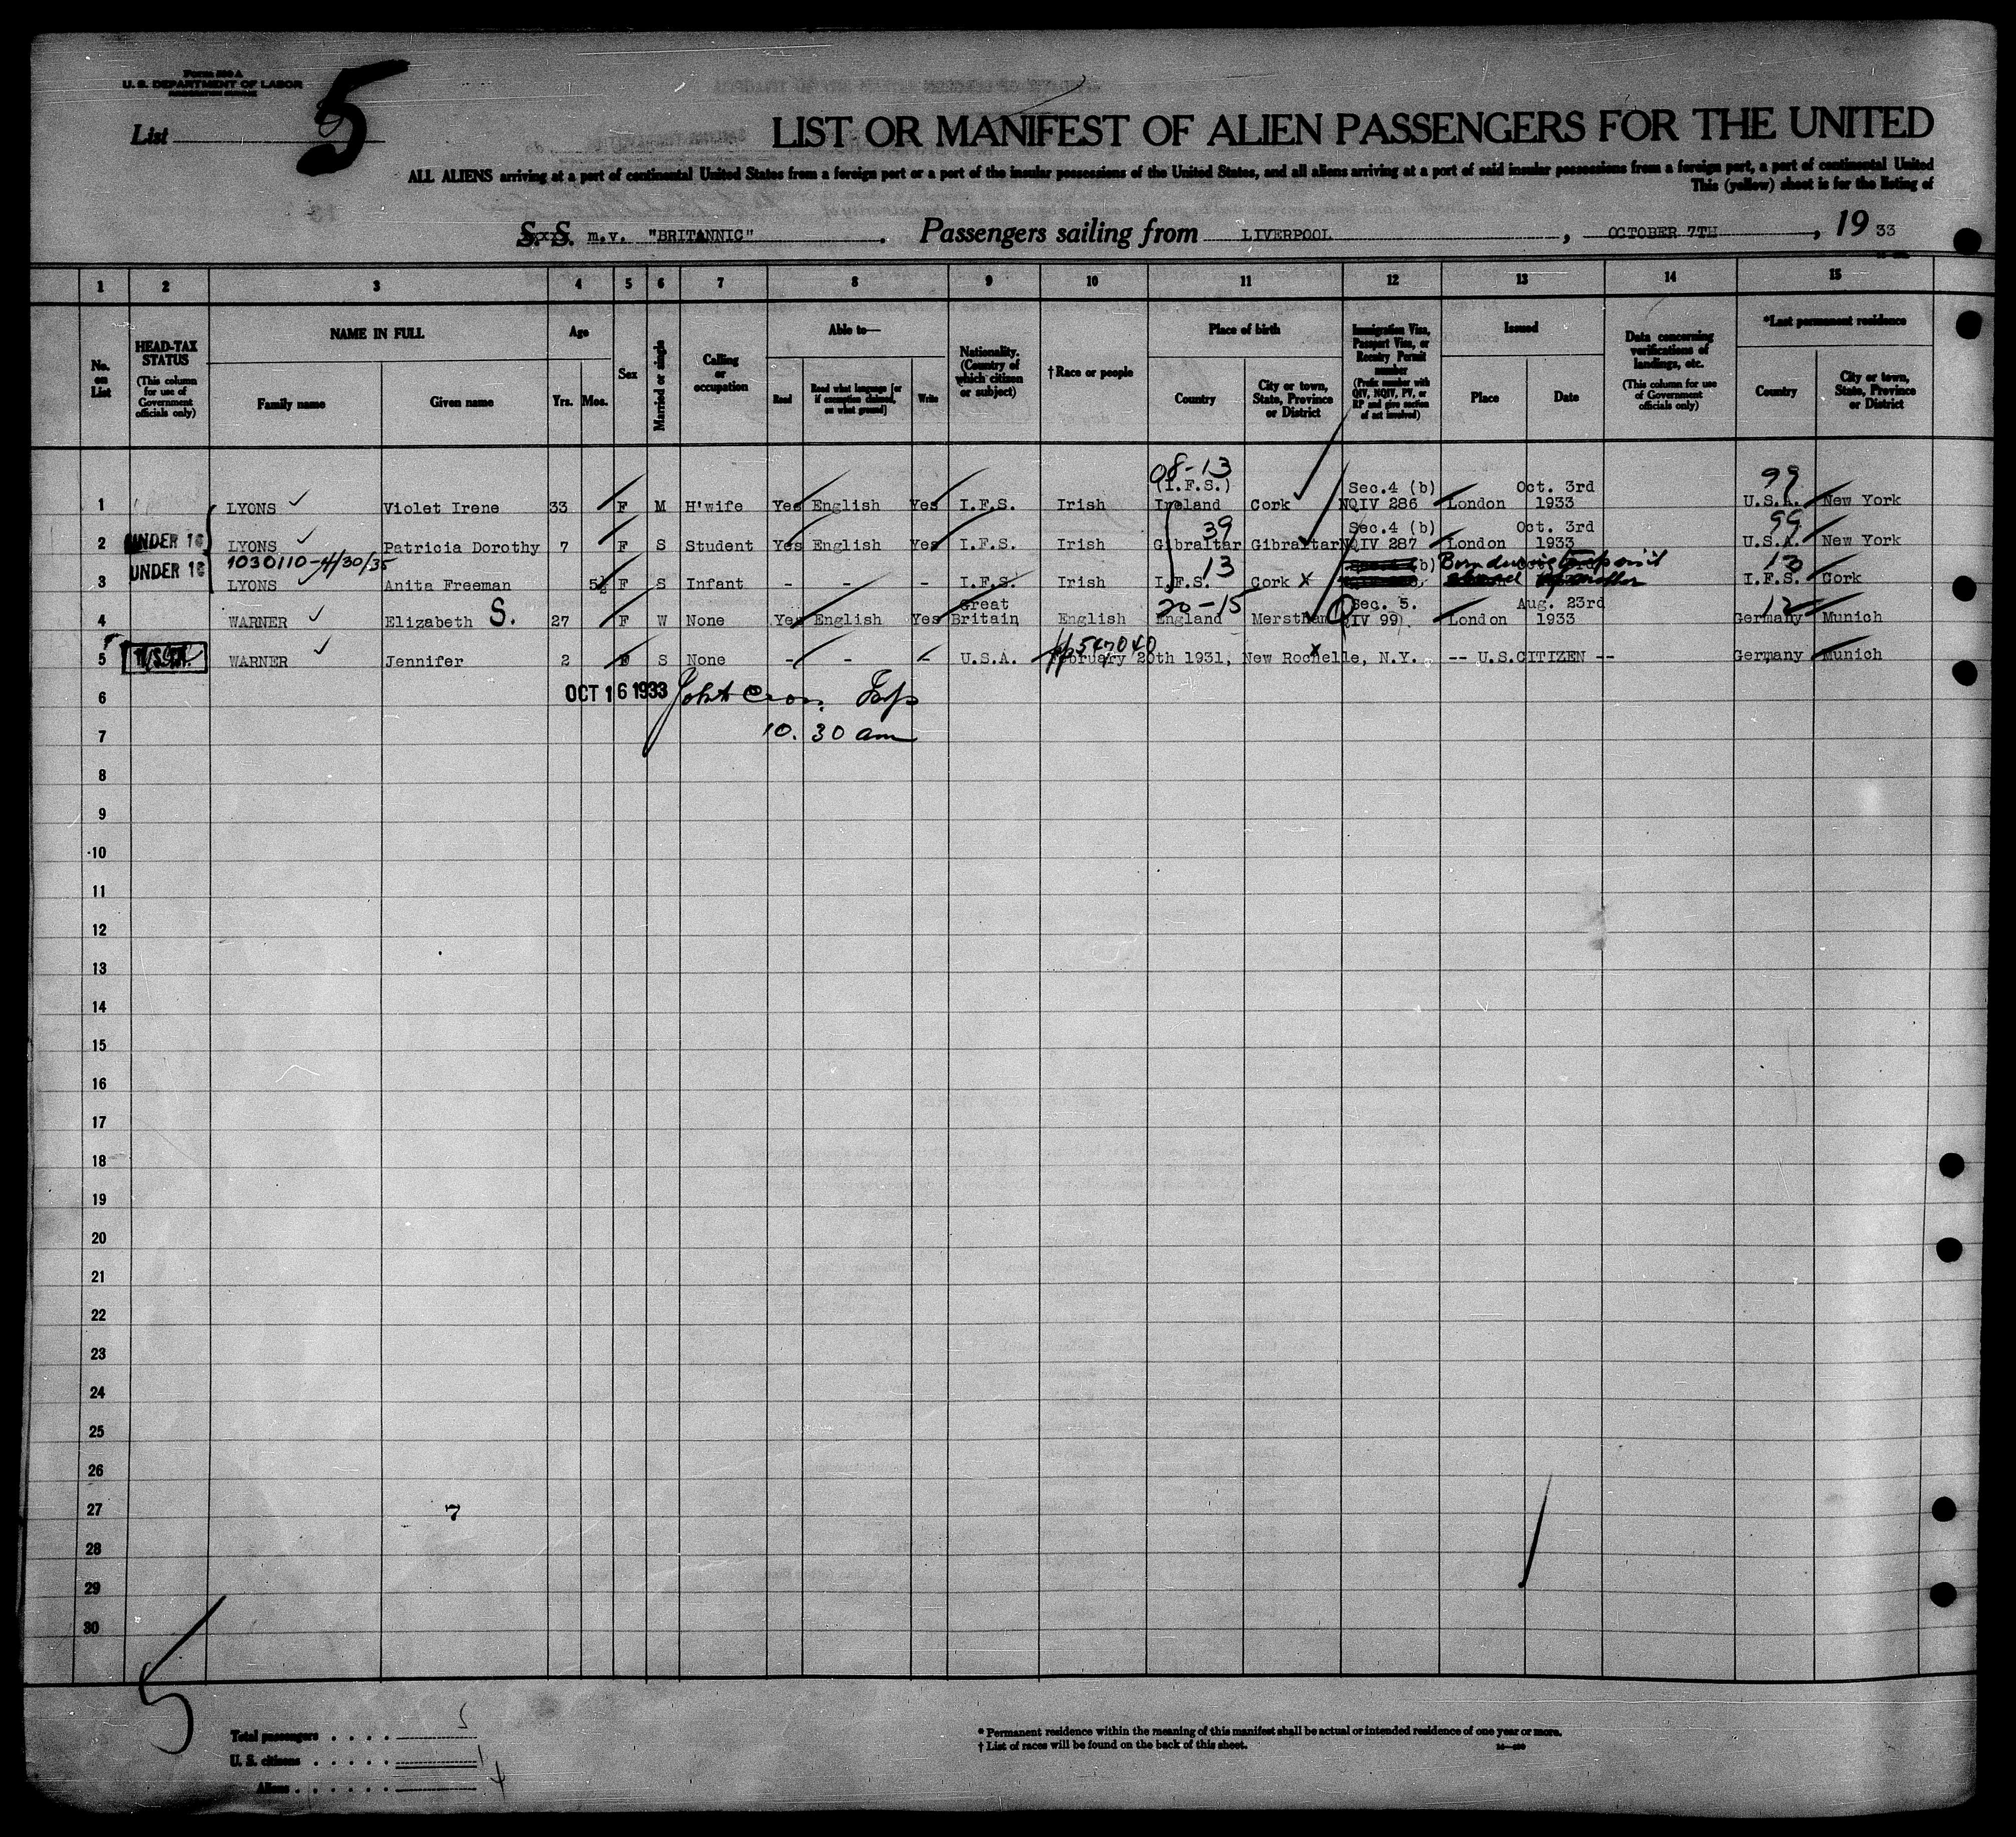 Form 500 A
U. S. DEPARTMENT OF LABOR
List 5
LIST OR MANIFEST OF ALIEN PASSENGERS FOR THE UNITED
ALL ALIENS arriving at a port of continental United States from a foreign port or a port of the insular possessions of the United States, and all aliens arriving at a port of said insular possessions from a foreign port, a port of continental United
This (yellow) sheet is for the listing of
S. S. m.v. "BRITANNIC". Passengers sailing from LIVERPOOL, OCTOBER 7TH, 19 33
1 2 3 4 5 6 7 8 9 10 11 12 13 14 15
No. on List
HEAD-TAX STATUS (This column for use of Government officials only)
NAME IN FULL
Family name Given name
Age
Yrs. Mos.
Sex
Married or single
Calling or occupation
Able to—
Read Read what language [or if exemption claimed, on what ground] Write
Nationality. (Country of which citizen or subject)
†Race or people
Place of birth
Country City or town, State, Province or District
Immigration Visa, Passport Visa, or Reentry Permit number (Prefix number with QIV, NQIV, PV, or RP and give section of act involved)
Issued
Place Date
Data concerning verifications of landings, etc. (This column for use of Government officials only)
*Last permanent residence
Country City or town, State, Province or District
08-13 99
(I.F.S.) Sec.4 (b) Oct. 3rd
1 LYONS Violet Irene 33 F M H'wife Yes English Yes I.F.S. Irish Ireland Cork NQIV 286 London 1933 U.S.A. New York
39 Sec.4 (b) Oct. 3rd 99
2 UNDER 16 LYONS Patricia Dorothy 7 F S Student Yes English Yes I.F.S. Irish Gibraltar Gibraltar NQIV 287 London 1933 U.S.A. New York
UNDER 16 1030110-4/30/35 13 Born during temp visit 13
3 LYONS Anita Freeman 5½ F S Infant - - - I.F.S. Irish I.F.S. Cork x abroad of mother I.F.S. Cork
Great 20-15 Sec. 5. Aug. 23rd 12
4 WARNER Elizabeth S. 27 F W None Yes English Yes Britain English England Merstham QIV 99 London 1933 Germany Munich
547040
5 WARNER Jennifer 2 F S None - - - U.S.A. February 20th 1931, New Rochelle, N.Y. -- U.S.CITIZEN -- Germany Munich
6 OCT 16 1933
7 10.30 am
8
9
10
11
12
13
14
15
16
17
18
19
20
21
22
23
24
25
26
27 7
28
29
30
5
Total passengers 5
U. S. citizens 1
Aliens 4
* Permanent residence within the meaning of this manifest shall be actual or intended residence of one year or more.
† List of races will be found on the back of this sheet.